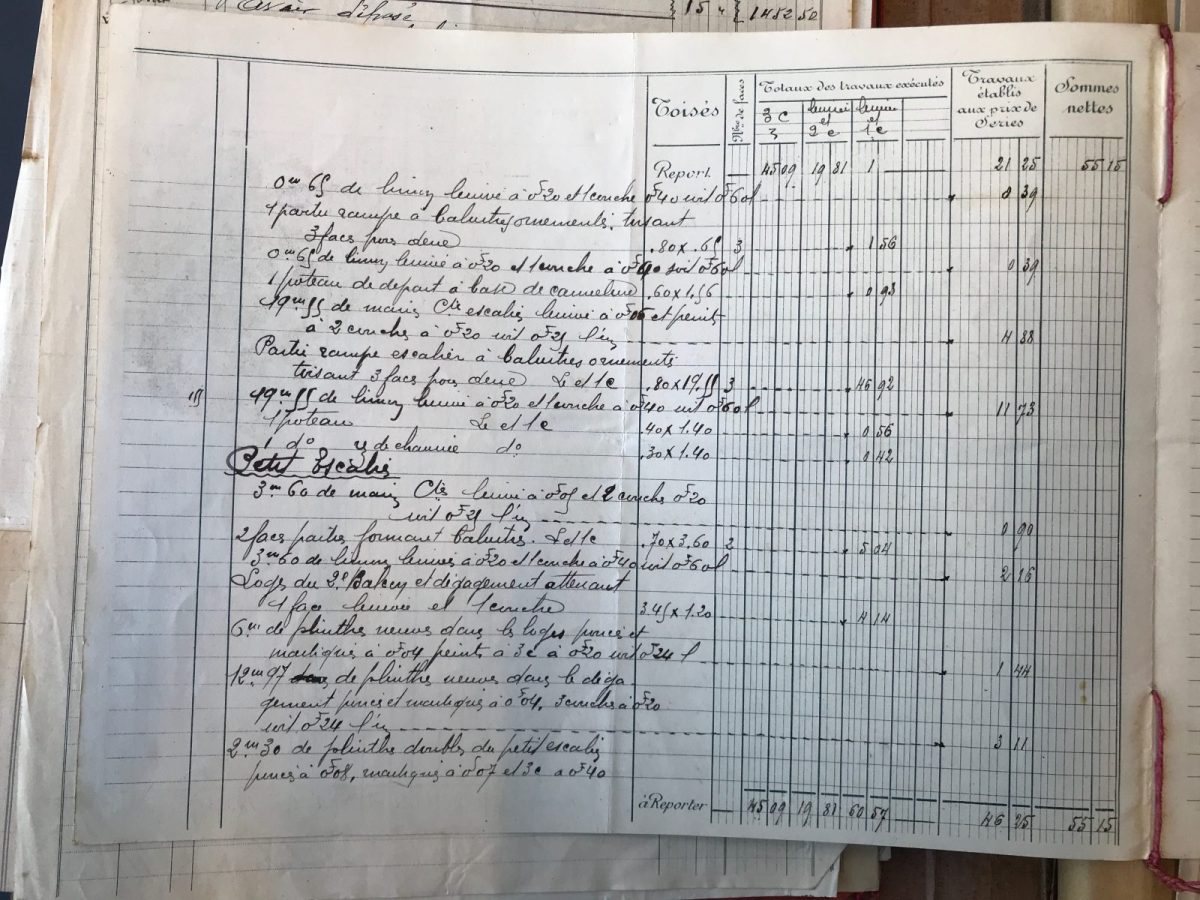 15 " 1452 50
Toisés
Nbre de faces
Totaux des travaux exécutés
Travaux établis aux prix de Séries
Sommes nettes
3 C
2 c
1 c
Report. 45 09 19 81 1 21 25 55 15
0m 65 de limon lessivé à 0f20 et 1 couche à 0f40 soit 0f60 l 0 39
1 partie rampe à balustres ornements, toisant
3 faces pour deux .80 x .65 3 1 56
0m 65 de limon lessivé à 0f20 et 1 couche à 0f40 soit 0f60 l 0 39
1 poteau de départ à base de .60 x 1.56 0 93
19m 55 de main Cte escalier lessivé à 0f05 et peints
à 2 couches à 0f20 soit 0f25 l'un 4 88
Partie rampe escalier à balustres ornements
toisant 3 faces pour deux L et 1c .80 x 19.55 3 46 92
19m 55 de limon lessivé à 0f20 et 1 couche à 0f40 soit 0f60 l 11 73
1 poteau L et 1c .40 x 1.40 0 56
1 do de do .30 x 1.40 0 42
Petit Escalier
3m 60 de main Cte lessivé à 0f05 et 2 couches 0f20
soit 0f25 l'un 0 90
2 faces parties formant balustres. L et 1c .70 x 3.60 2 5 04
3m 60 de limon lessivé à 0f20 et 1 couche à 0f40 soit 0f60 l 2 16
Loges du 2e Balcon et dégagement attenant
1 face lessivée et 1 couche 3.45 x 1.20 4 14
6m de plinthes neuves dans les loges poncés et
mastiqués à 0f04 peints à 3c à 0f20 soit 0f24 l 1 44
12m 97 de plinthes neuves dans le déga
gement poncés et mastiqués à 0f04, 3 couches à 0f20
soit 0f24 l'un 3 11
2m 30 de plinthes doubles du petit escalier
poncés à 0f08, mastiqués à 0f07 et 3c à 0f40
à Reporter 45 09 19 81 60 57 46 25 55 15